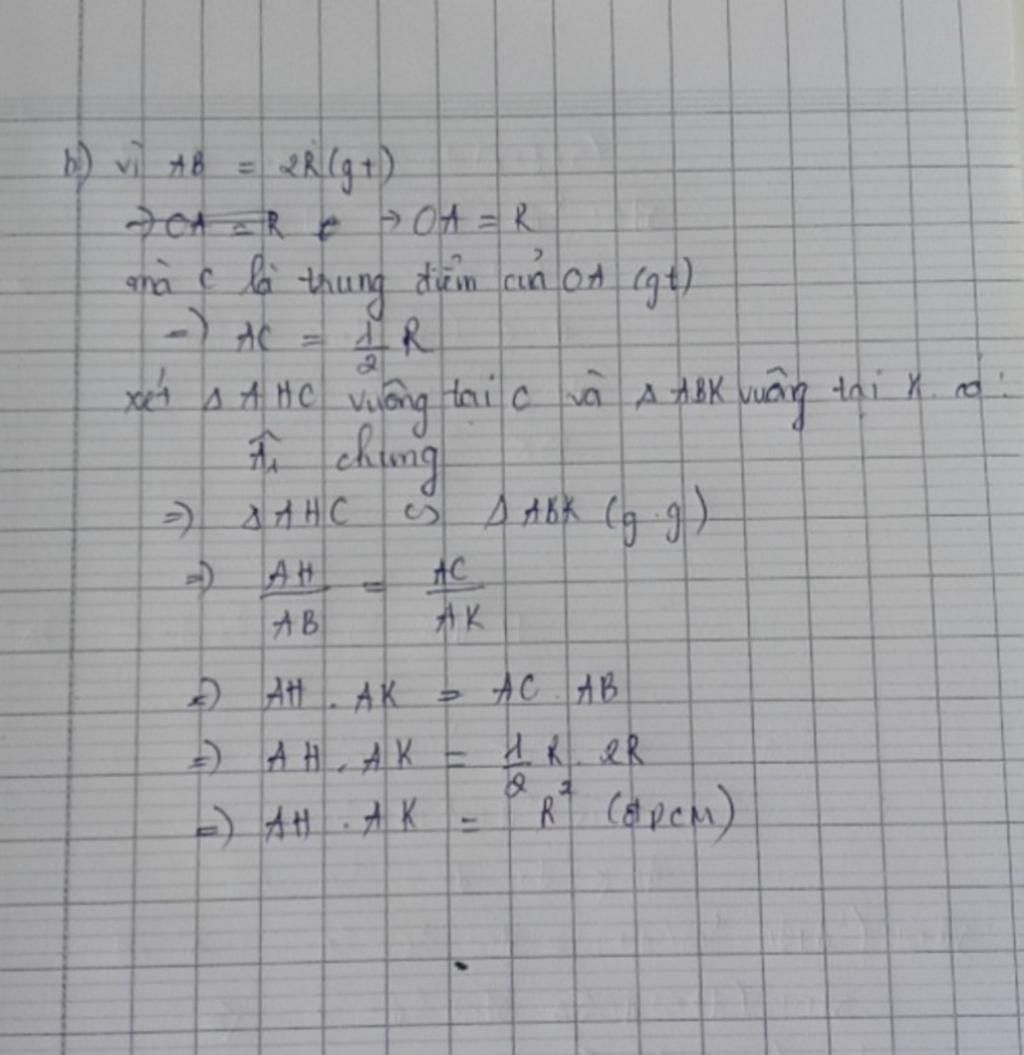 b) vì AB = 2R (gt)
→ OA = R → OA = R
mà C là trung điểm của OA (gt)
→ AC = 1/2 R
xét Δ AHC vuông tại C và Δ ABK vuông tại K có:
Â₁ chung
=> Δ AHC ∽ Δ ABK (g.g)
=> AH/AB = AC/AK
=> AH . AK = AC . AB
=> AH . AK = 1/2 R . 2R
=> AH . AK = R² (đpcm)